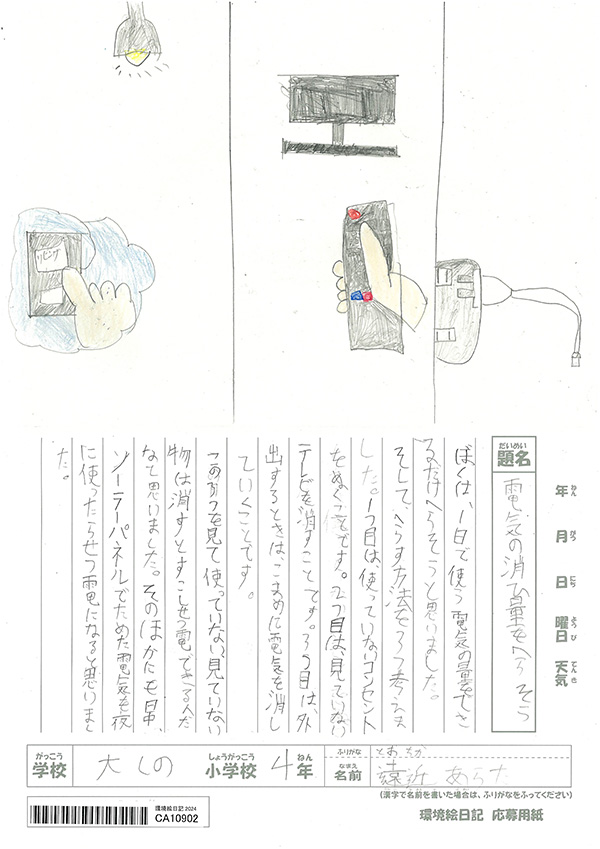 リビング
だいめい
題名
電気の消ひ量をへらそう
年 ねん
月 がつ
日 にち
曜日 ようび
天気 てんき
ぼくは、1日で使う電気の量をでき
るだけへらそうと思いました。
そして、へらす方法を3つ考えま
した。1つ目は使っていないコンセント
をぬくことです。2つ目は、見ていない
テレビを消すことです。3つ目は、外
出するときは、こまめに電気を消し
ていくことです。
この3つを見て使っていない、見ていない
物は消すとすこしせつ電できるんだ
なと思いました。そのほかにも日中、
ソーラーパネルでためた電気を夜
に使ったらせつ電になると思いまし
た。
がっこう
学校
大しの
しょうがっこう
小学校
4年 ねん
ふりがな
とおちか
なまえ
名前
遠近 あらた
(漢字で名前を書いた場合は、ふりがなをふってください)
環境絵日記2024
CA10902
環境絵日記 応募用紙